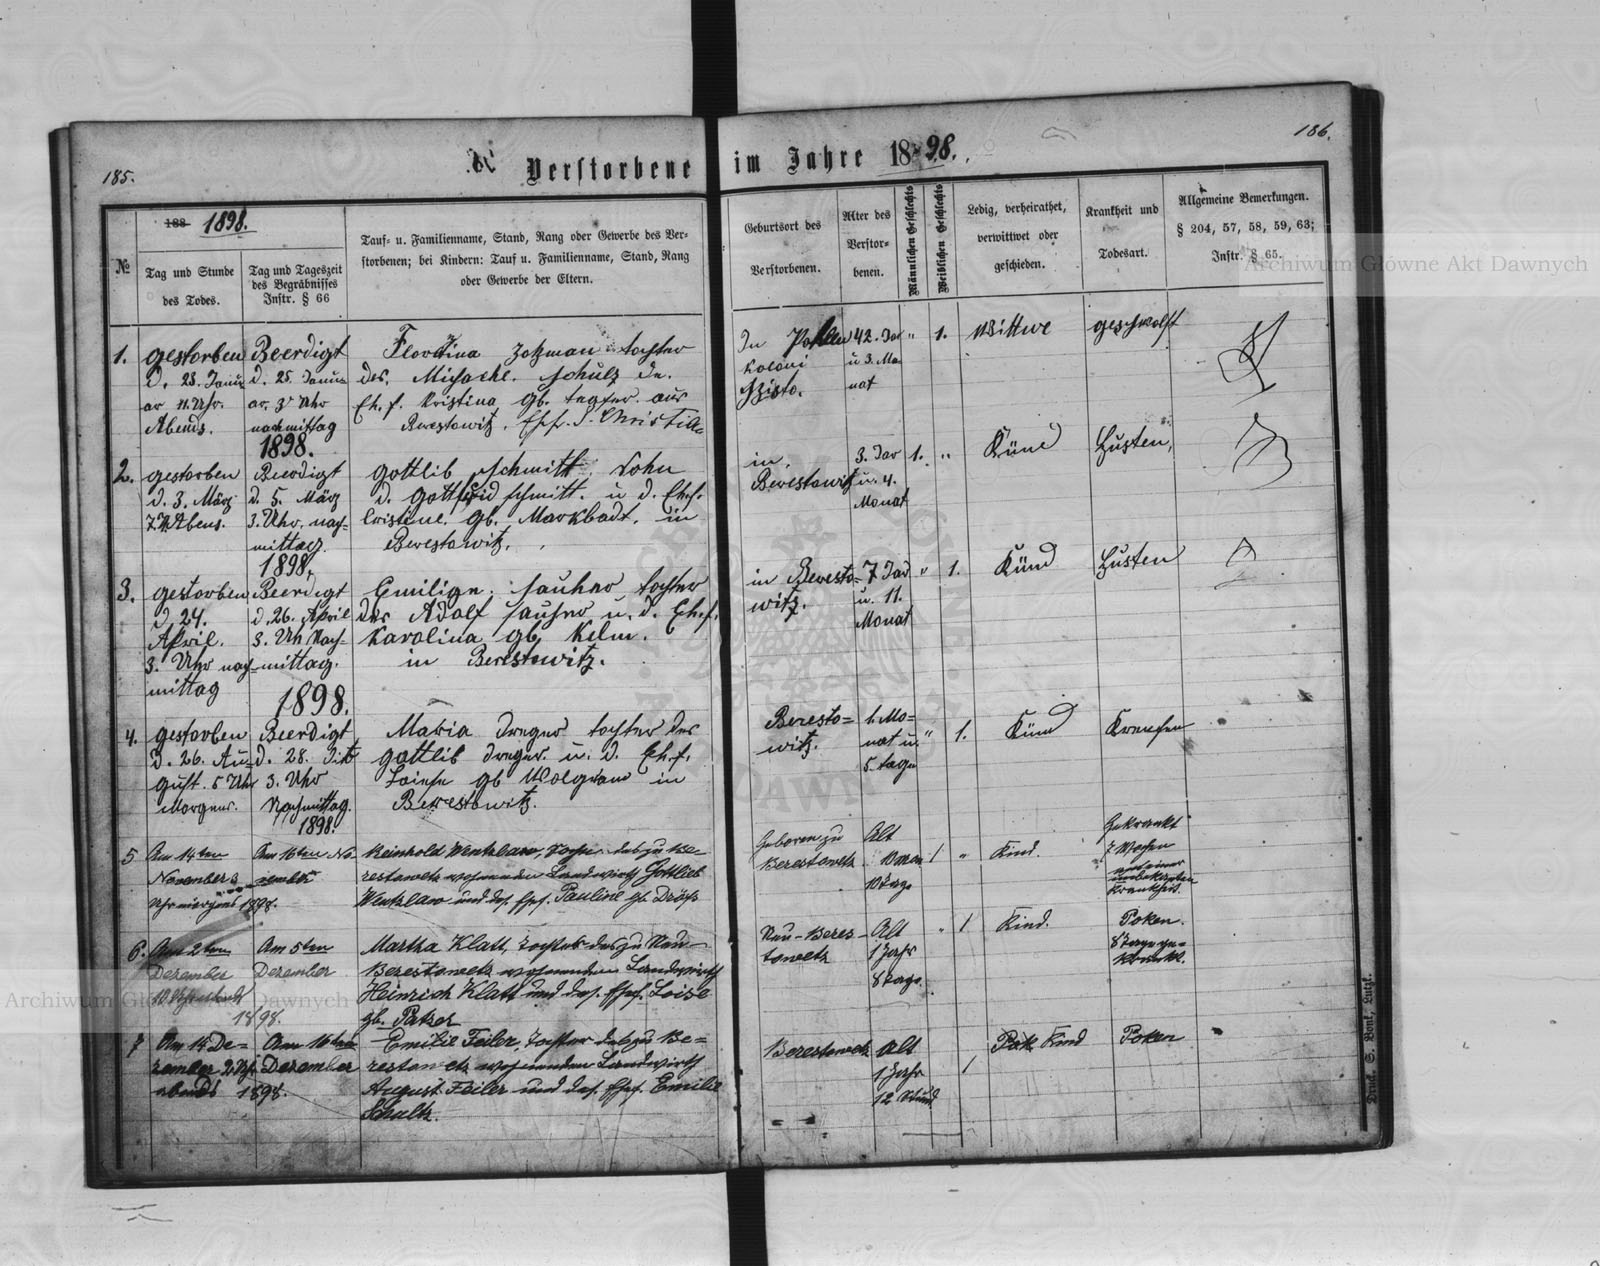 185.
186.
Verstorbene im Jahre 1898.
№
188 1898.
Tag und Stunde
des Todes.
Tag und Tageszeit
des Begräbnisses
Instr. § 66
Tauf- u. Familienname, Stand, Rang oder Gewerbe des Ver-
storbenen; bei Kindern: Tauf u. Familienname, Stand, Rang
oder Gewerbe der Eltern.
Geburtsort des
Verstorbenen.
Alter des
Verstor-
benen.
Männlichen Geschlechts
Weiblichen Geschlechts
Ledig, verheirathet,
verwittwet oder
geschieden.
Krankheit und
Todesart.
Allgemeine Bemerkungen.
§ 204, 57, 58, 59, 63;
Instr. § 65.
1.
gestorben
Abends.
Beerdigt
d. 25. Januar
ar. 3 Uhr
nachmittag
1898.
tochter
des. Michael. Schulz
Kristina gb.
Berestowitz.
In
Koloni
42. Jar
u 3. Mo
nat
" 1.
Wittwe
geschwolst
2.
gestorben
d. 3. März
Beerdigt
d. 5. März
3. Uhr. nach-
mittag.
1898.
gottlib Schmitt. Sohn
d. gottfrid schmitt. u d. Eh.f.
Cristine. gb. Markbadt. in
Berestowitz.
in.
Berestowitz
3. Jar
u. 4.
Monat
1. "
Künd
Husten,
3.
gestorben
d 24.
April.
3. Uhr nach-
mittag
Beerdigt
d. 26. April
3. Uh Nach-
mittag.
1898.
tochter
des Adolf u. d. Eh.f.
Karolina gb. Kelm.
in Berestowitz.
in Beresto-
witz.
7 Jar
u. 11.
Monat
" 1.
Künd
Husten
4.
gestorben
d. 26. Au-
gust. 5 Uhr
Morgens.
Beerdigt
d. 28.
3. Uhr
Nachmittag.
1898.
Maria Dreger tochter des
gottlib Dreger. u. d. Eh.f.
gb. in
Berestowitz.
Beresto=
witz.
1. Mo-
nat u.
5. tage
" 1.
Künd
5
Am 14ten
November 3
Uhr morgens 1898.
Am 16ten No
vember
Reinhold Wentzlaw, Sohn des zu Be-
restowetz wohnenden Landwirth Gottlieb
Wentzlaw und des. Ehef. Pauline gb.
Geboren zu
Berestowetz
Alt
10 Tage
1 "
Kind.
Gekrankt
7 Wochen
an einer
unbekanten
Krankheit.
6.
Am 2ten
Dezember
Am 5ten
Dezember
1898.
Martha Klatt, Tochter des zu Neu-
Berestowetz wohnenden Landwirth
Heinrich Klatt und des. Ehef. Loise
gb. Patzer
Neu-Beres-
towetz
Alt
1 Jahr
8 Tage.
" 1
Kind.
Poken.
8 Tage ge-
krankt.
7
Am 14 De-
zember
abends 1898.
Am 16ten
Dezember
Emilie Feiler, Tochter des zu Be=
restowetz wohnenden Landwirth
August Feiler und des. Ehef. Emilie
Schultz.
Berestowetz
Alt
1 Jahr
12 Stund.
1
Kind
Poken
Archiwum Główne Akt Dawnych
Archiwum Główne Akt Dawnych